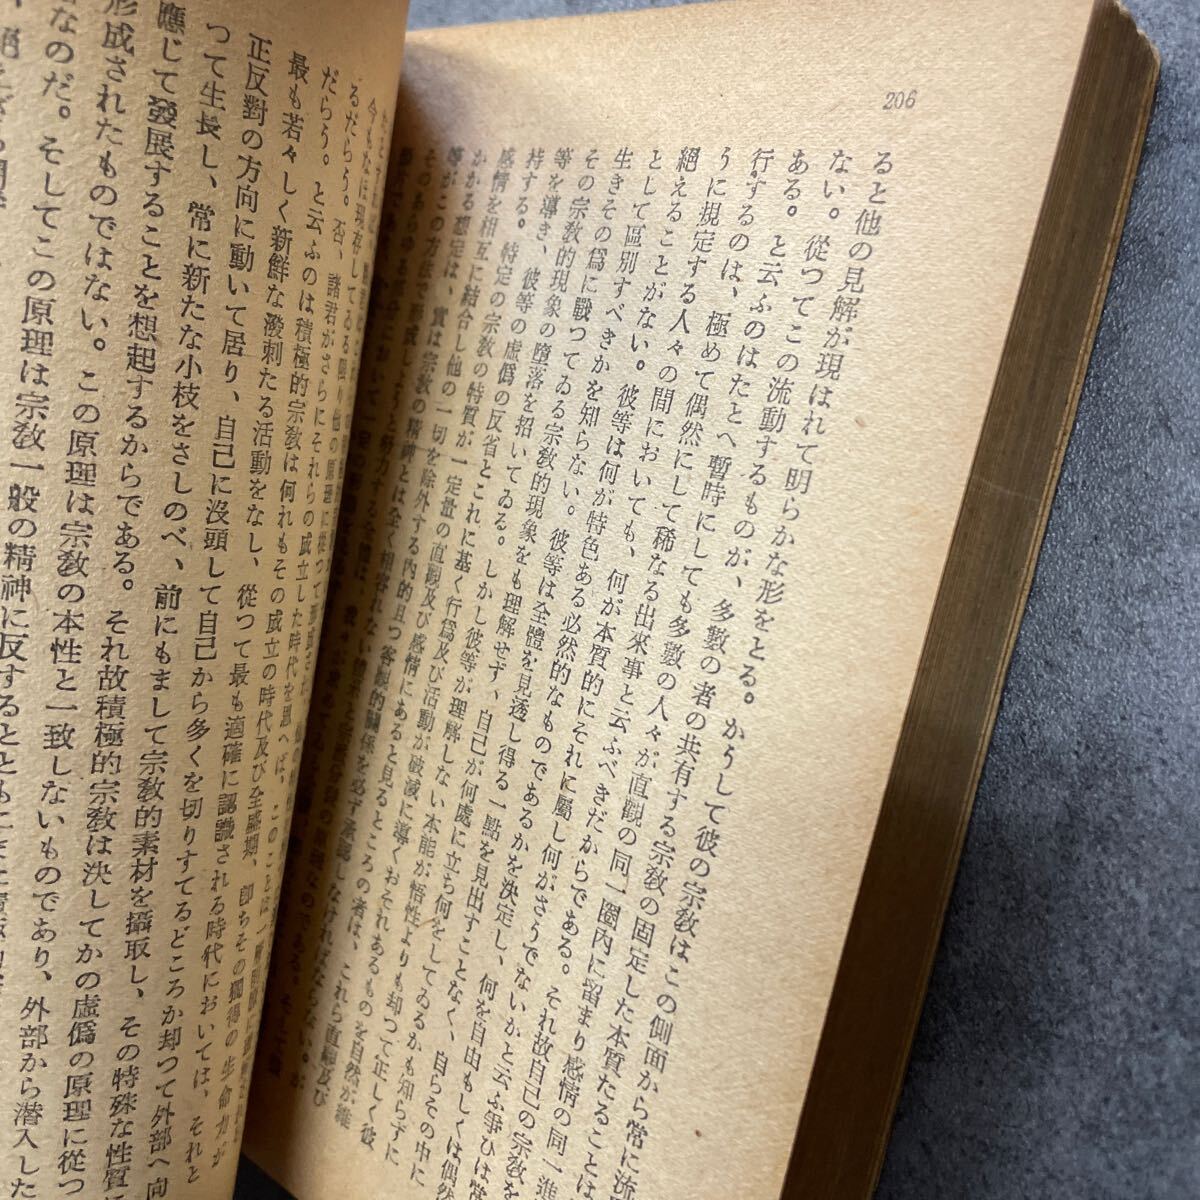 206
ると他の見解が現はれて明らかな形をとる。かうして彼の宗敎はこの側面から常に流
ない。從つてこの流動するものが、多數の者の共有する宗敎の固定した本質たることは
ある。と云ふのはたとへ暫時にしても多數の人々が直觀の同一圈內に留まり感情の同一進
行するのは、極めて偶然にして稀なる出來事と云ふべきだからである。それ故自己の宗敎を
うに規定する人々の間においても、何が本質的にそれに屬し何がさうでないかと云ふ爭ひは常
絕えることがない。彼等は何が特色ある必然的なものであるかを決定し、何を自由もしくは偶然
として區別すべきかを知らない。彼等は全體を見透し得る一點を見出すことなく、自らその中に
生きその爲に戰つてゐる宗敎的現象をも理解せず、自己が何處に立ち何をしてゐるかも知らずに
その宗敎的現象の墮落を招いてゐる。しかし彼等が理解しない本能が悟性よりも却つて正しく彼
等を導き、彼等の虛僞の反省とこれに基く行爲及び活動が破滅に導くおそれあるものを自然が維
持する。特定の宗敎の特質が一定量の直觀及び感情にあると見るところの者は、これら直觀及び
感情を相互に結合し他の一切を除外する內的且つ客觀的關係を必ず承認しなければならない。が
かかる想定は、實は宗敎の精神とは全く相容れない
等がこの方法で形成しようと努力する全體は、
そのあらゆる部分において一定の
今もなほ現存してゐる限り他の原理に從つて形成され
るだらう。否、諸君がさらにそれらの成立した時代を思へば、このことは一層明瞭に
だらう。と云ふのは積極的宗敎は何れもその成立の時代及び全盛期、卽ちその獨得の生命力が
最も若々しく新鮮な潑剌たる活動をなし、從つて最も適確に認識される時代においては、それと
正反對の方向に動いて居り、自己に沒頭して自己から多くを切りすてるどころか却つて外部へ向
つて生長し、常に新たな小枝をさしのべ、前にもまして宗敎的素材を攝取し、その特殊な性質に
應じて發展することを想起するからである。それ故積極的宗敎は決してかの虛僞の原理に從つ
形成されたものではない。この原理は宗敎の本性と一致しないものであり、外部から潛入した
なのだ。そしてこの原理は宗敎一般の精神に反するとともに